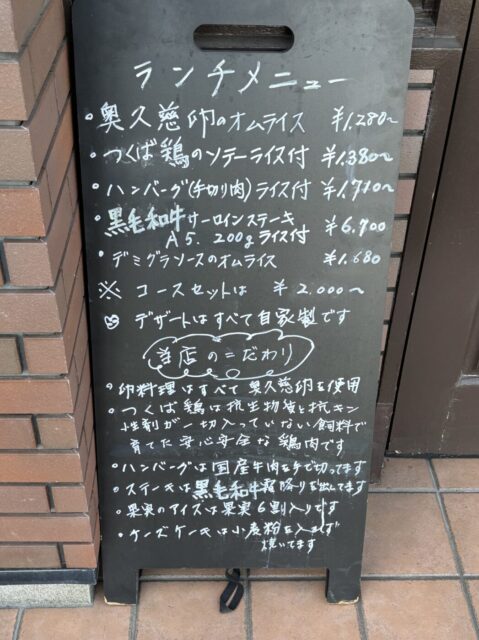 ランチメニュー
・奥久慈卵のオムライス ¥1.280~
・つくば鶏のソテーライス付 ¥1.380~
・ハンバーグ(手切り肉)ライス付 ¥1.710~
・黒毛和牛サーロインステーキ
A5. 200g ライス付 ¥6.700
・デミグラソースのオムライス ¥1.680
※ コースセットは ¥2.000~
デザートはすべて自家製です
当店のこだわり
・卵料理はすべて奥久慈卵を使用
・つくば鶏は抗生物質と抗キン
性剤が一切入っていない飼料で
育てた安心安全な鶏肉です
・ハンバーグは国産牛肉を手で切ってます
・ステーキは黒毛和牛霜降りを出してます
・果実のアイスは果実6割入りです
・ケーズケーキは小麦粉を入れず
焼いてます